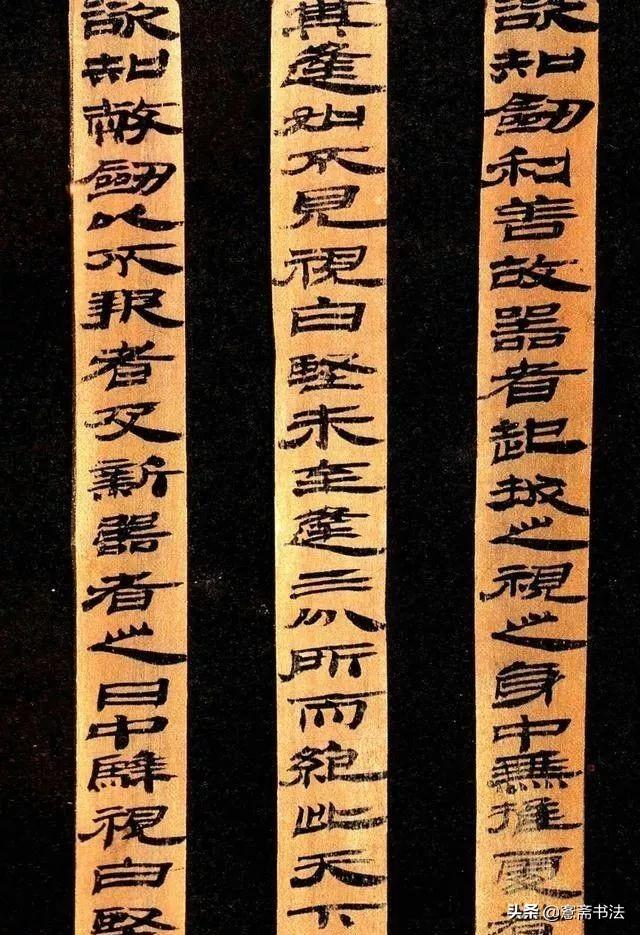 欲知劒利善故器者起拔之視之身中無推更有
其逢如不見視白堅未至逢三分所而絕此天下
欲知敝劒以不報者及新器者之日中騂視白堅
头条 @鴦斋书法